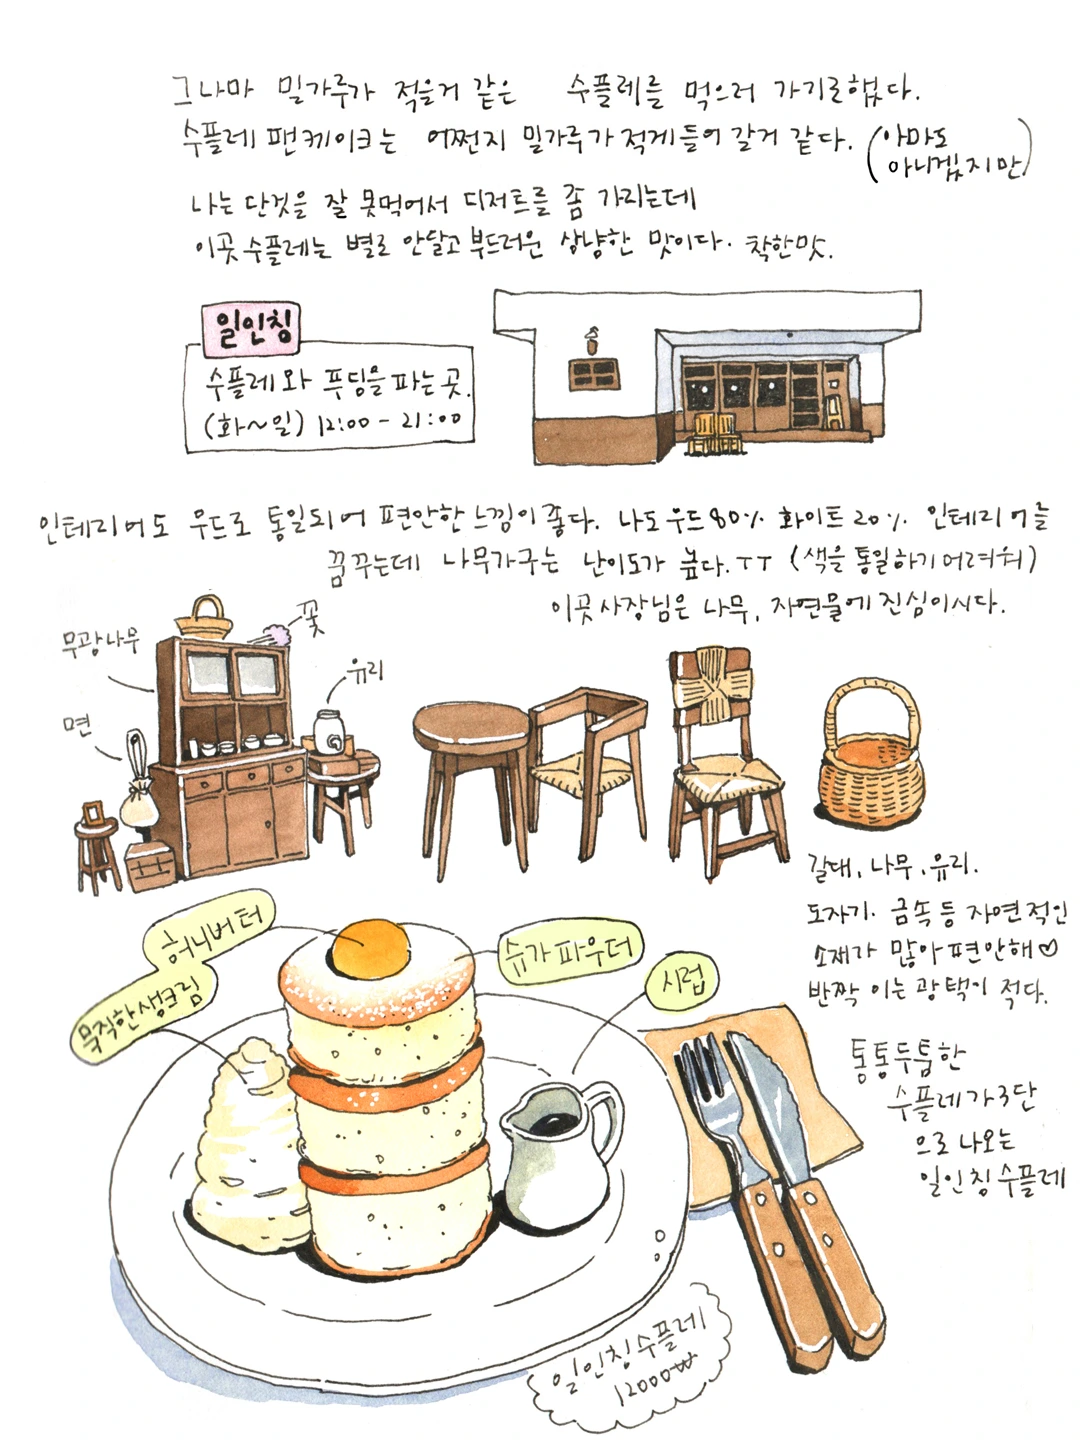 그나마 밀가루가 적을거 같은 수플레를 먹으러 가기로했다.
수플레 팬케이크는 어쩐지 밀가루가 적게들어 갈거 같다. (아마도
아니겠지만)
나는 단것을 잘 못먹어서 디저트를 좀 가리는데
이곳 수플레는 별로 안달고 부드러운 상냥한 맛이다. 착한맛.
일인칭
수플레와 푸딩을 파는 곳.
(화~일) 12:00 - 21:00
인테리어도 우드로 통일되어 편안한 느낌이 좋다. 나도 우드 80% 화이트 20% 인테리어를
꿈꾸는데 나무가구는 난이도가 높다.ㅜㅜ (색을 통일하기 어려워)
이곳 사장님은 나무, 자연물에 진심이시다.
무광나무
꽃
유리
면
갈대, 나무, 유리.
도자기. 금속 등 자연적인
소재가 많아 편안해♡
반짝 이는 광택이 적다.
허니버터
묵직한 생크림
슈가 파우더
시럽
통통두툼한
수플레가 3단
으로 나오는
일인칭 수플레
일인칭 수플레
12000₩